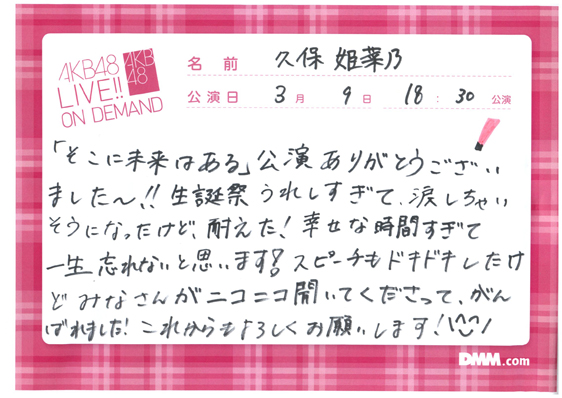 AKB48
LIVE!!
ON DEMAND
AKB
48
名前 久保 姫菜乃
公演日 3月 9日 18:30 公演
「そこに未来はある」公演 ありがとうござい
ました〜!! 生誕祭 うれしすぎて、涙しちゃい
そうになったけど、耐えた! 幸せな時間すぎて
一生 忘れないと思います!! スピーチもドキドキしたけ
ど みなさんがニコニコ聞いてくださって、がん
ばれました! これからもよろしくお願いします! \^^/
DMM.com